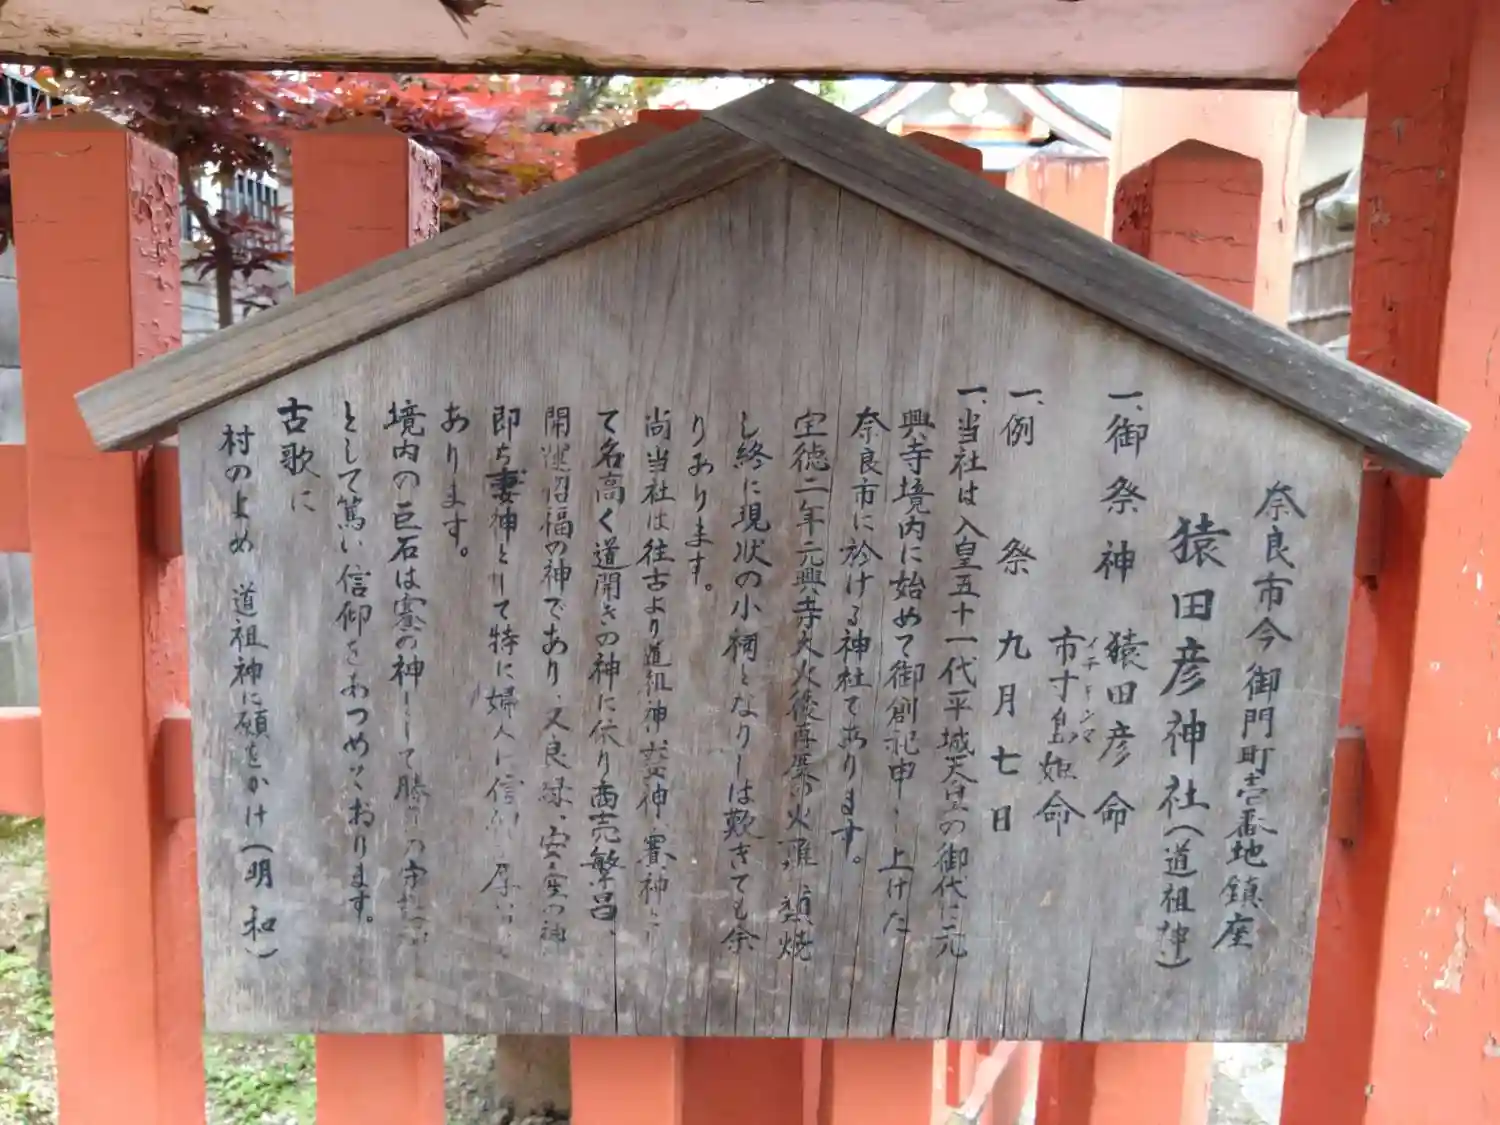 奈良市今御門町壱番地鎮座
猿田彦神社(道祖神)
一、御祭神 猿田彦命
市寸島姫命
イチキシマ
一、例 祭 九月七日
一、当社は人皇五十一代平城天皇の御代に元
興寺境内に始めて御創祀申し上げた
奈良市に於ける神社であります。
宝徳二年元興寺大火後再度の火難に類焼
し終に現状の小祠となりしは歎きても余
りあります。
尚当社は往古より道祖神、神、賽神
て名高く道開きの神に依り商売繁昌、
開運招福の神であり、又良縁、安産の神
即ち妻神として特に婦人に信仰
あります。
境内の巨石は賽の神として勝の守
として篤い信仰をあつめております。
古歌に
村のよめ 道祖神に願をかけ(明和)